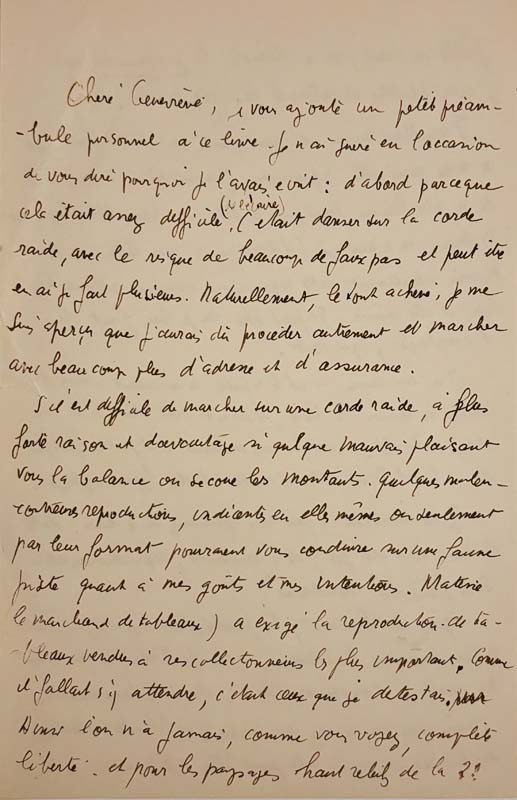 Cheré Geneviève, je vous ajoute un petit préam-
-bule personnel à ce livre. Je n'ai guère eu l'occasion
de vous dire pourquoi je l'avais écrit : d'abord parceque
cela était assez difficile, C'était danser sur la corde
raide, avec le risque de beaucoup de faux pas et peut être
en ai je fait plusieurs. Naturellement, le tout achevé, je me
suis aperçu que j'aurais dû procéder autrement et marcher
avec beaucoup plus d'adresse et d'assurance.
S'il est difficile de marcher sur une corde raide, à plus
forte raison et davantage si quelque mauvais plaisant
vous la balance ou secoue les montants. Quelques malen-
-contreuses reproductions, indécentes en elles mêmes ou seulement
par leur format pourraient vous conduire sur une fausse
piste quant à mes goûts et mes intentions. Matisse
le marchand de tableaux) a exigé la reproduction de ta-
-bleaux vendus à ses collectionneurs les plus important. Comme
il fallait s'y attendre, c'était ceux que je detestais.
Ainsi l'on n'a jamais, comme vous voyez, complète
liberté. et pour les paysages haut reliefs de la